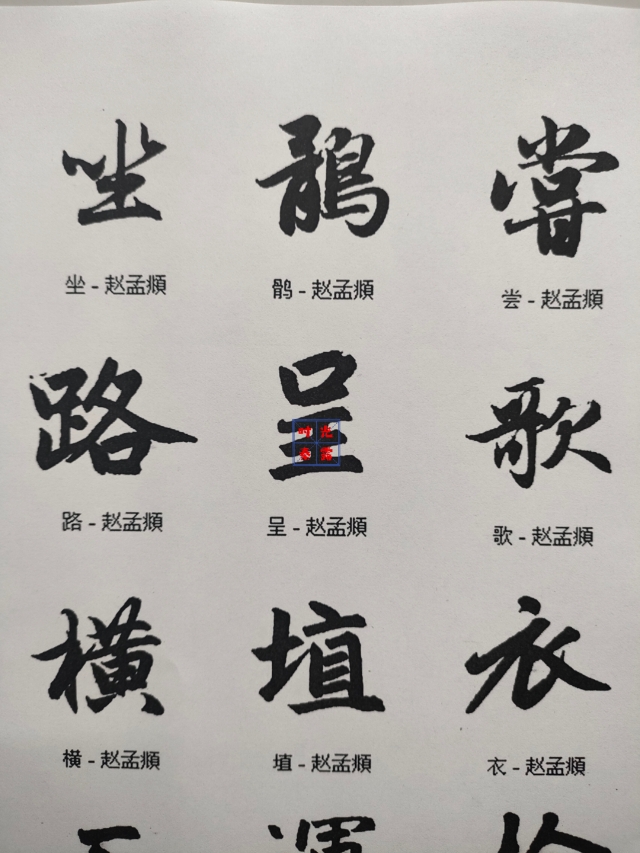 坐 鶻 嘗
坐-赵孟頫 鹘-赵孟頫 尝-赵孟頫
路 呈 歌
时光
路-赵孟頫 呈-赵孟頫 歌-赵孟頫
橫 埴 衣
横-赵孟頫 埴-赵孟頫 衣-赵孟頫